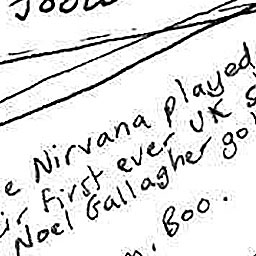 e Nirvana played
ir first ever UK s
Noel Gallagher go
Boo.